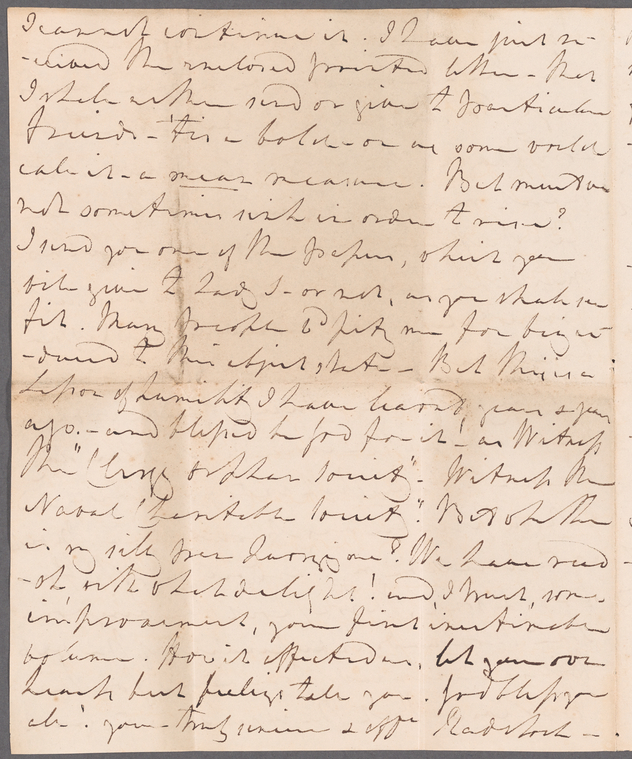 I cannot continue it. I have just re-
-ceived the enclosed printed letter - that
I shall either send or give to particular
friends - 'tis a bold - or as some would
call it - a mean measure. But must we
not sometimes sink in order to rise?
I send you one of the papers, which you
will give to Lady S- or not, as you shall see
fit. Many people wd pity me for being re-
-duced to this abject state - But this is a
Lesson of humility I have learnd years & years
ago. - and blessed be God for it! as Witness
the "Clergy orphan Society" - Witness the
Naval Charitable Society". But oh the
is my silly pen leaving me? We have read
-oh with what delight! and I trust, some
improvement, your first inestimable
volume. How it affected us, let your own
heart's best feelings tell you. God bless you
all! your truly sincere & affte Radstock -